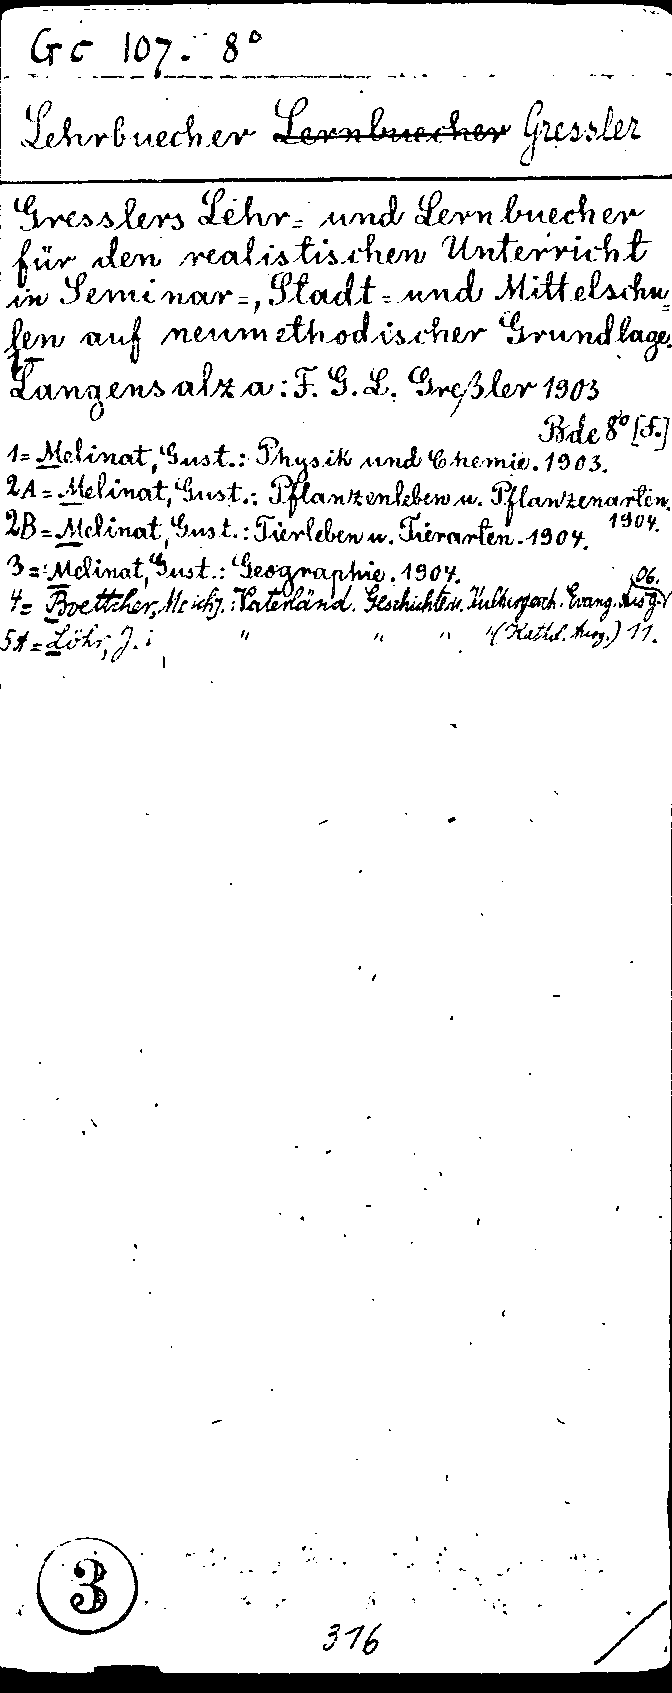 Gc 107. 8°
Lehrbuecher Lernbuecher Gressler
Gresslers Lehr= und Lernbuecher
für den realistischen Unterricht
in Seminar=, Stadt= und Mittelschu=
len auf neumethodischer Grundlage.
Langensalza: F. G. L. Greßler 1903
Bde 8° [f.]
1= Melinat, Gust.: Physik und Chemie. 1903.
2A= Melinat, Gust.: Pflanzenleben u. Pflanzenarten.
1904.
2B= Melinat, Gust.: Tierleben u. Tierarten. 1904.
3= Melinat, Gust.: Geographie. 1904.
06.
4= Boettcher, : Vaterländ. Geschichte u. Evang. Ausg.
5A= Löhr, J.: " " " " (Kathol. Ausg.) 11.
3
316